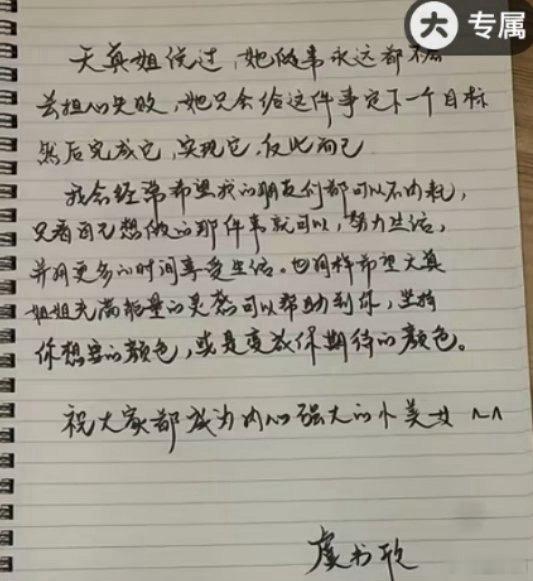 大 专属
天真姐说过,她做事永远都不会
去担心失败,她只会给这件事定下一个目标
然后完成它,实现它,仅此而已
我会经常希望我的朋友们都可以不内耗,
只看自己想做的那件事就可以,努力生活,
并用更多的时间享受生活。也同样希望天真
姐姐充满能量的灵感可以帮助到你,坚持
你想要的颜色,或是变成你期待的颜色。
祝大家都成为内心强大的小美女 ^^
虞书欣